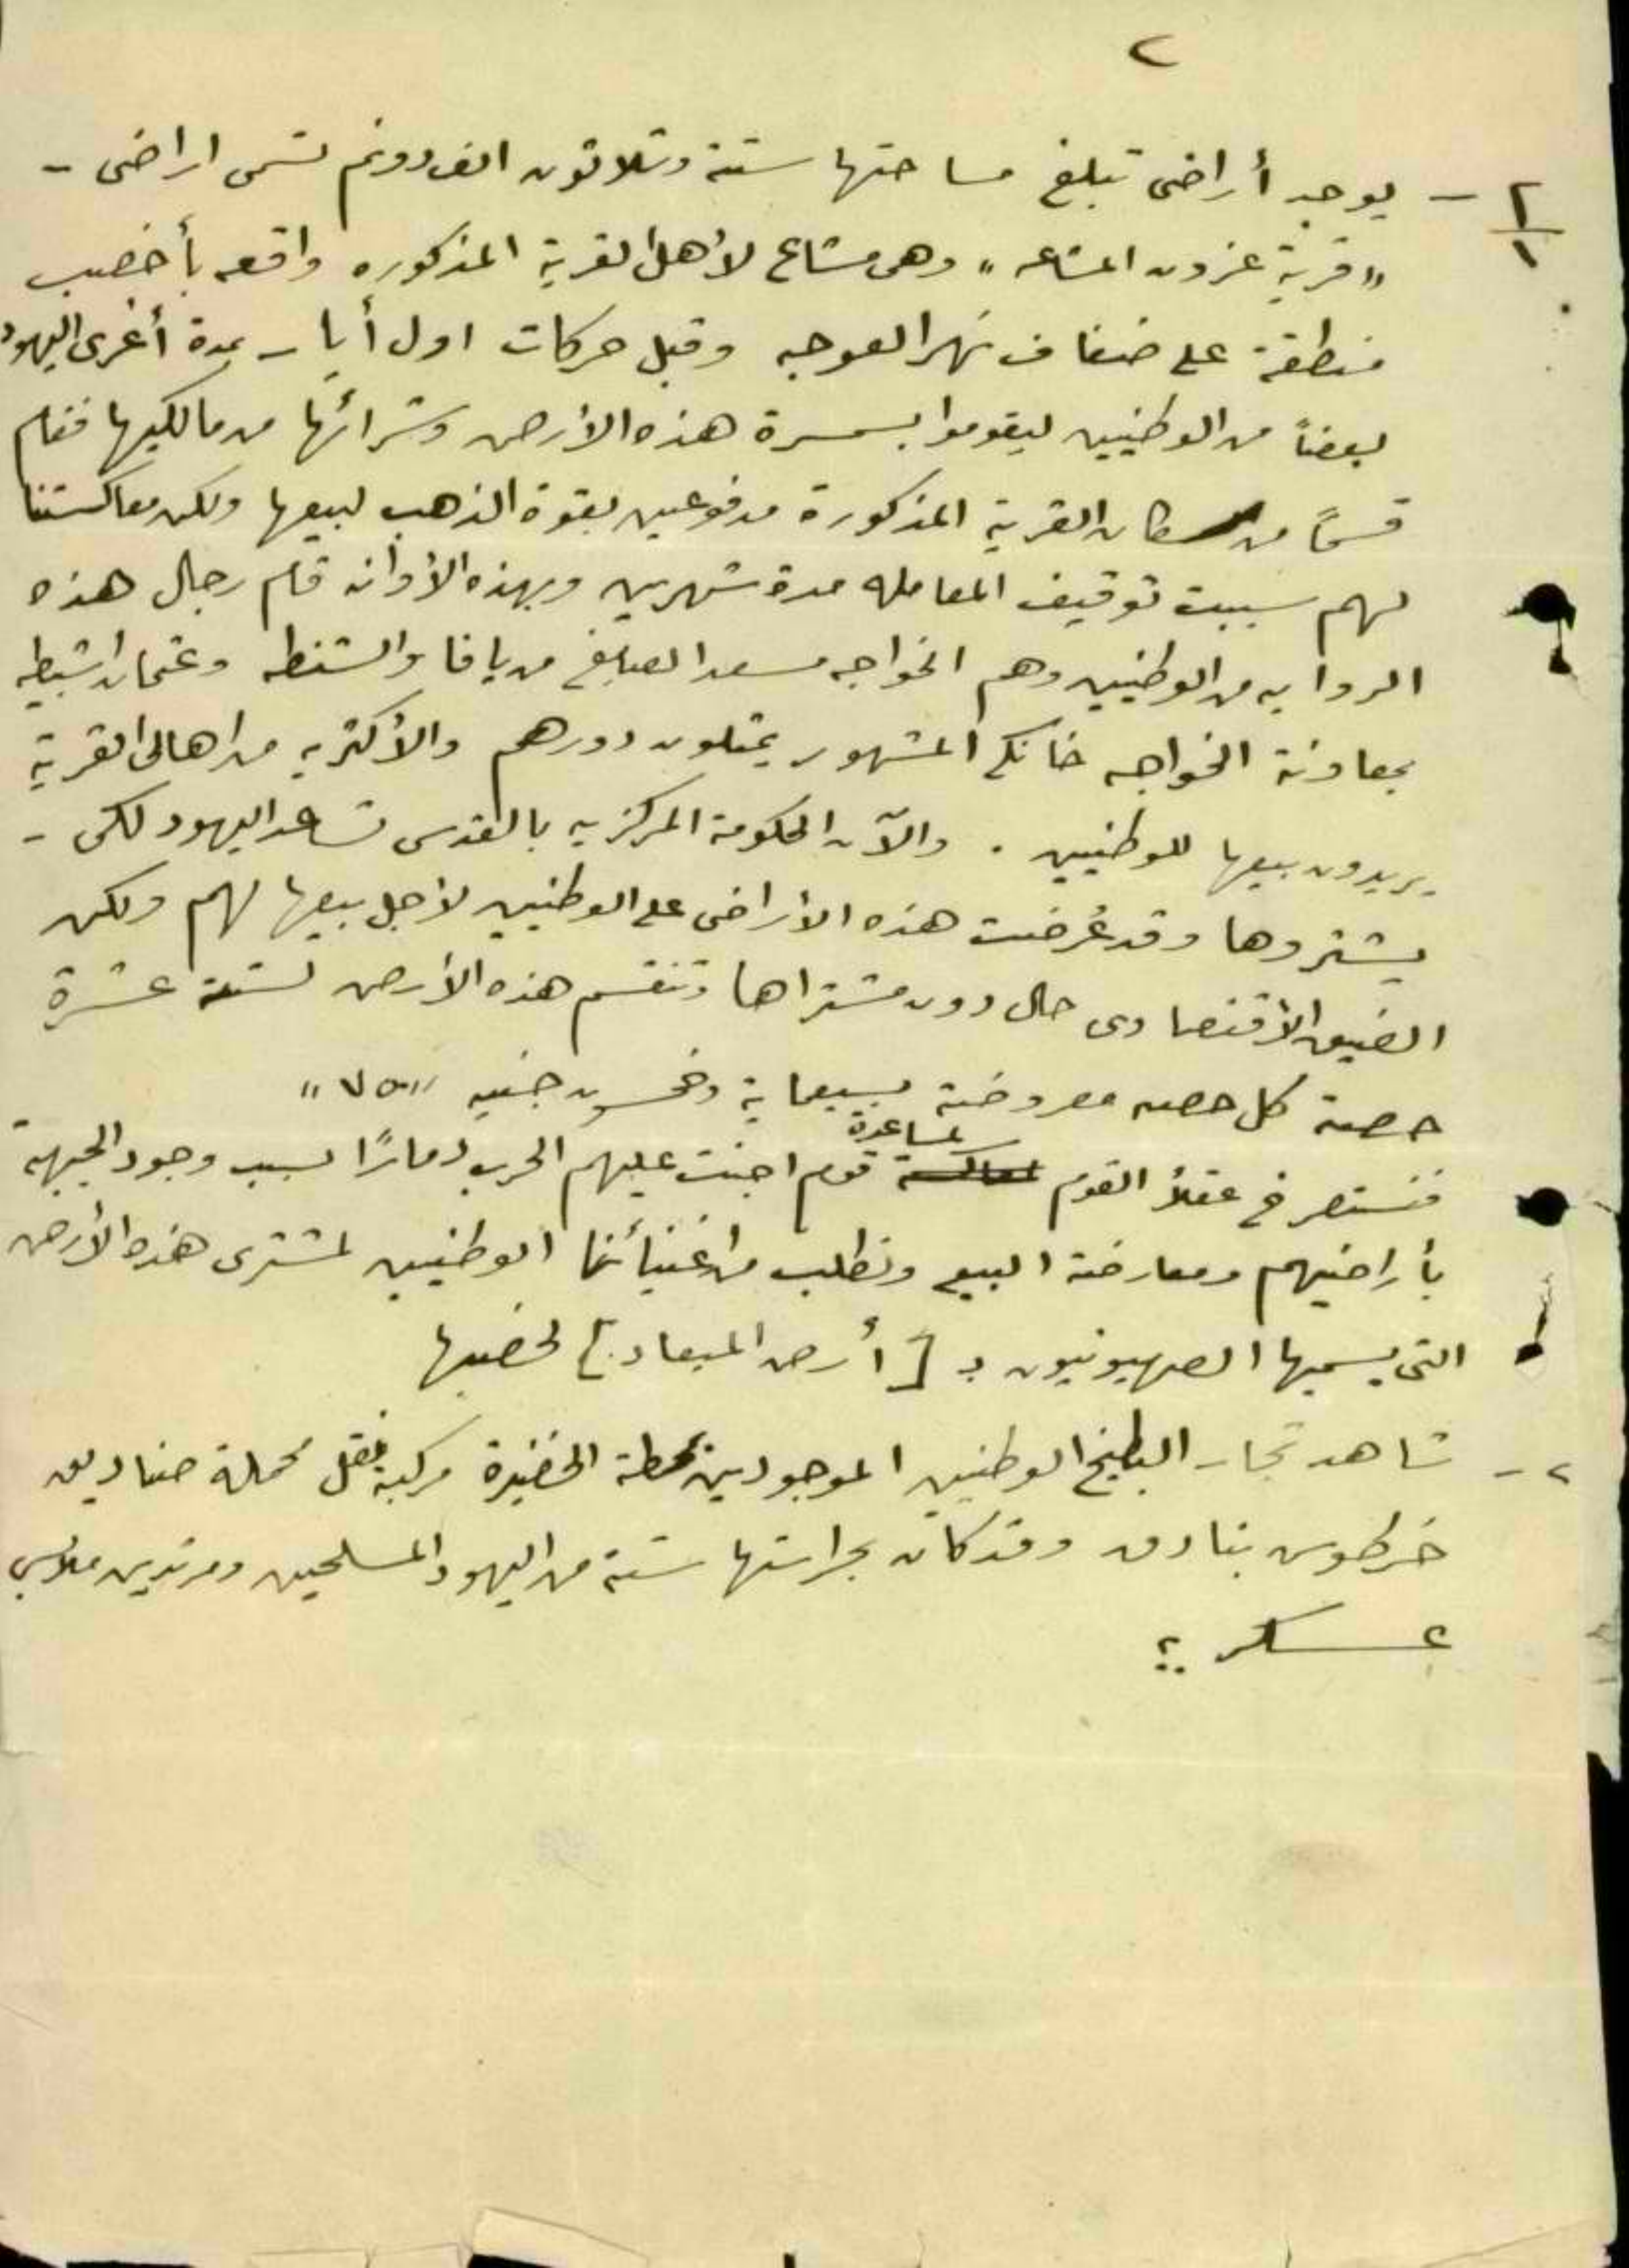 ٢
٢/١ - يوجد أراضى تبلغ مساحتها ستة وثلاثون الف دونم تسمى اراضى -
"قرية عزون المشاعه" وهى مشاع لأهل القرية المذكوره واقعه بأخصب
منطقة على ضفاف نهر العوجه وقبل حركات اول أيار بمدة أغرى اليهود
بعضاً من الوطنيين ليقوموا بسمسرة هذه الأرض وشرائها من مالكيها فقام
قسماً من سكان القرية المذكورة مدفوعين بقوة الذهب لبيعها ولكن معاكستنا
لهم سببت توقيف المعامله مدة شهرين وبهذه الأوانه قام رجال هذه
الروايه من الوطنيين وهم الخواجه سعد الصايغ من يافا والشنطه وعثمان اشبيطه
بمعاونة الخواجه خانكم المشهور يمثلون دورهم والأكثريه من اهالى القرية
يريدون بيعها للوطنيين . والآن الحكومة المركزيه بالقدس تساعد اليهود لكى -
يشتروها وقد عُرضت هذه الأراضى على الوطنيين لأجل بيعها لهم ولكن
الضيق الأقتصادى حال دون مشتراها وتنقسم هذه الأرض لستة عشرة
حصة كل حصه معروضة بسبعماية وخمسون جنيه "٧٥٠"
فنستصرخ عقلأ القوم لمساعدة قوم اجنت عليهم الحرب دماراً بسبب وجود الجبهة
بأراضيهم ومعارضة البيع ونطلب من اغنيائنا الوطنيين لمشترى هذه الأرض
التى يسميها الصهيونيون بـ [أرض الميعاد] لخصبها
٢- شاهد تجار البطيخ الوطنيين الموجودين بمحطة الخضيرة مركبة نقل محملة صناديق
خرطوش بنادق وقد كان بحراستها ستة من اليهود المسلحين ومرتدين ملابس
عسكرية